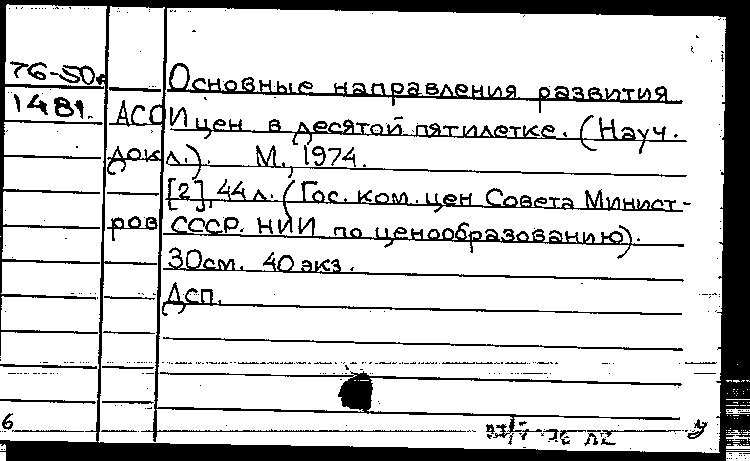 76-50
Основные направления развития
1481. АСОИ цен в десятой пятилетке. (Науч.
докл.). М., 1974.
[2], 44 л. (Гос. ком. цен Совета Минист-
ров СССР. НИИ по ценообразованию).
30 см. 40 экз.
Дсп.
6